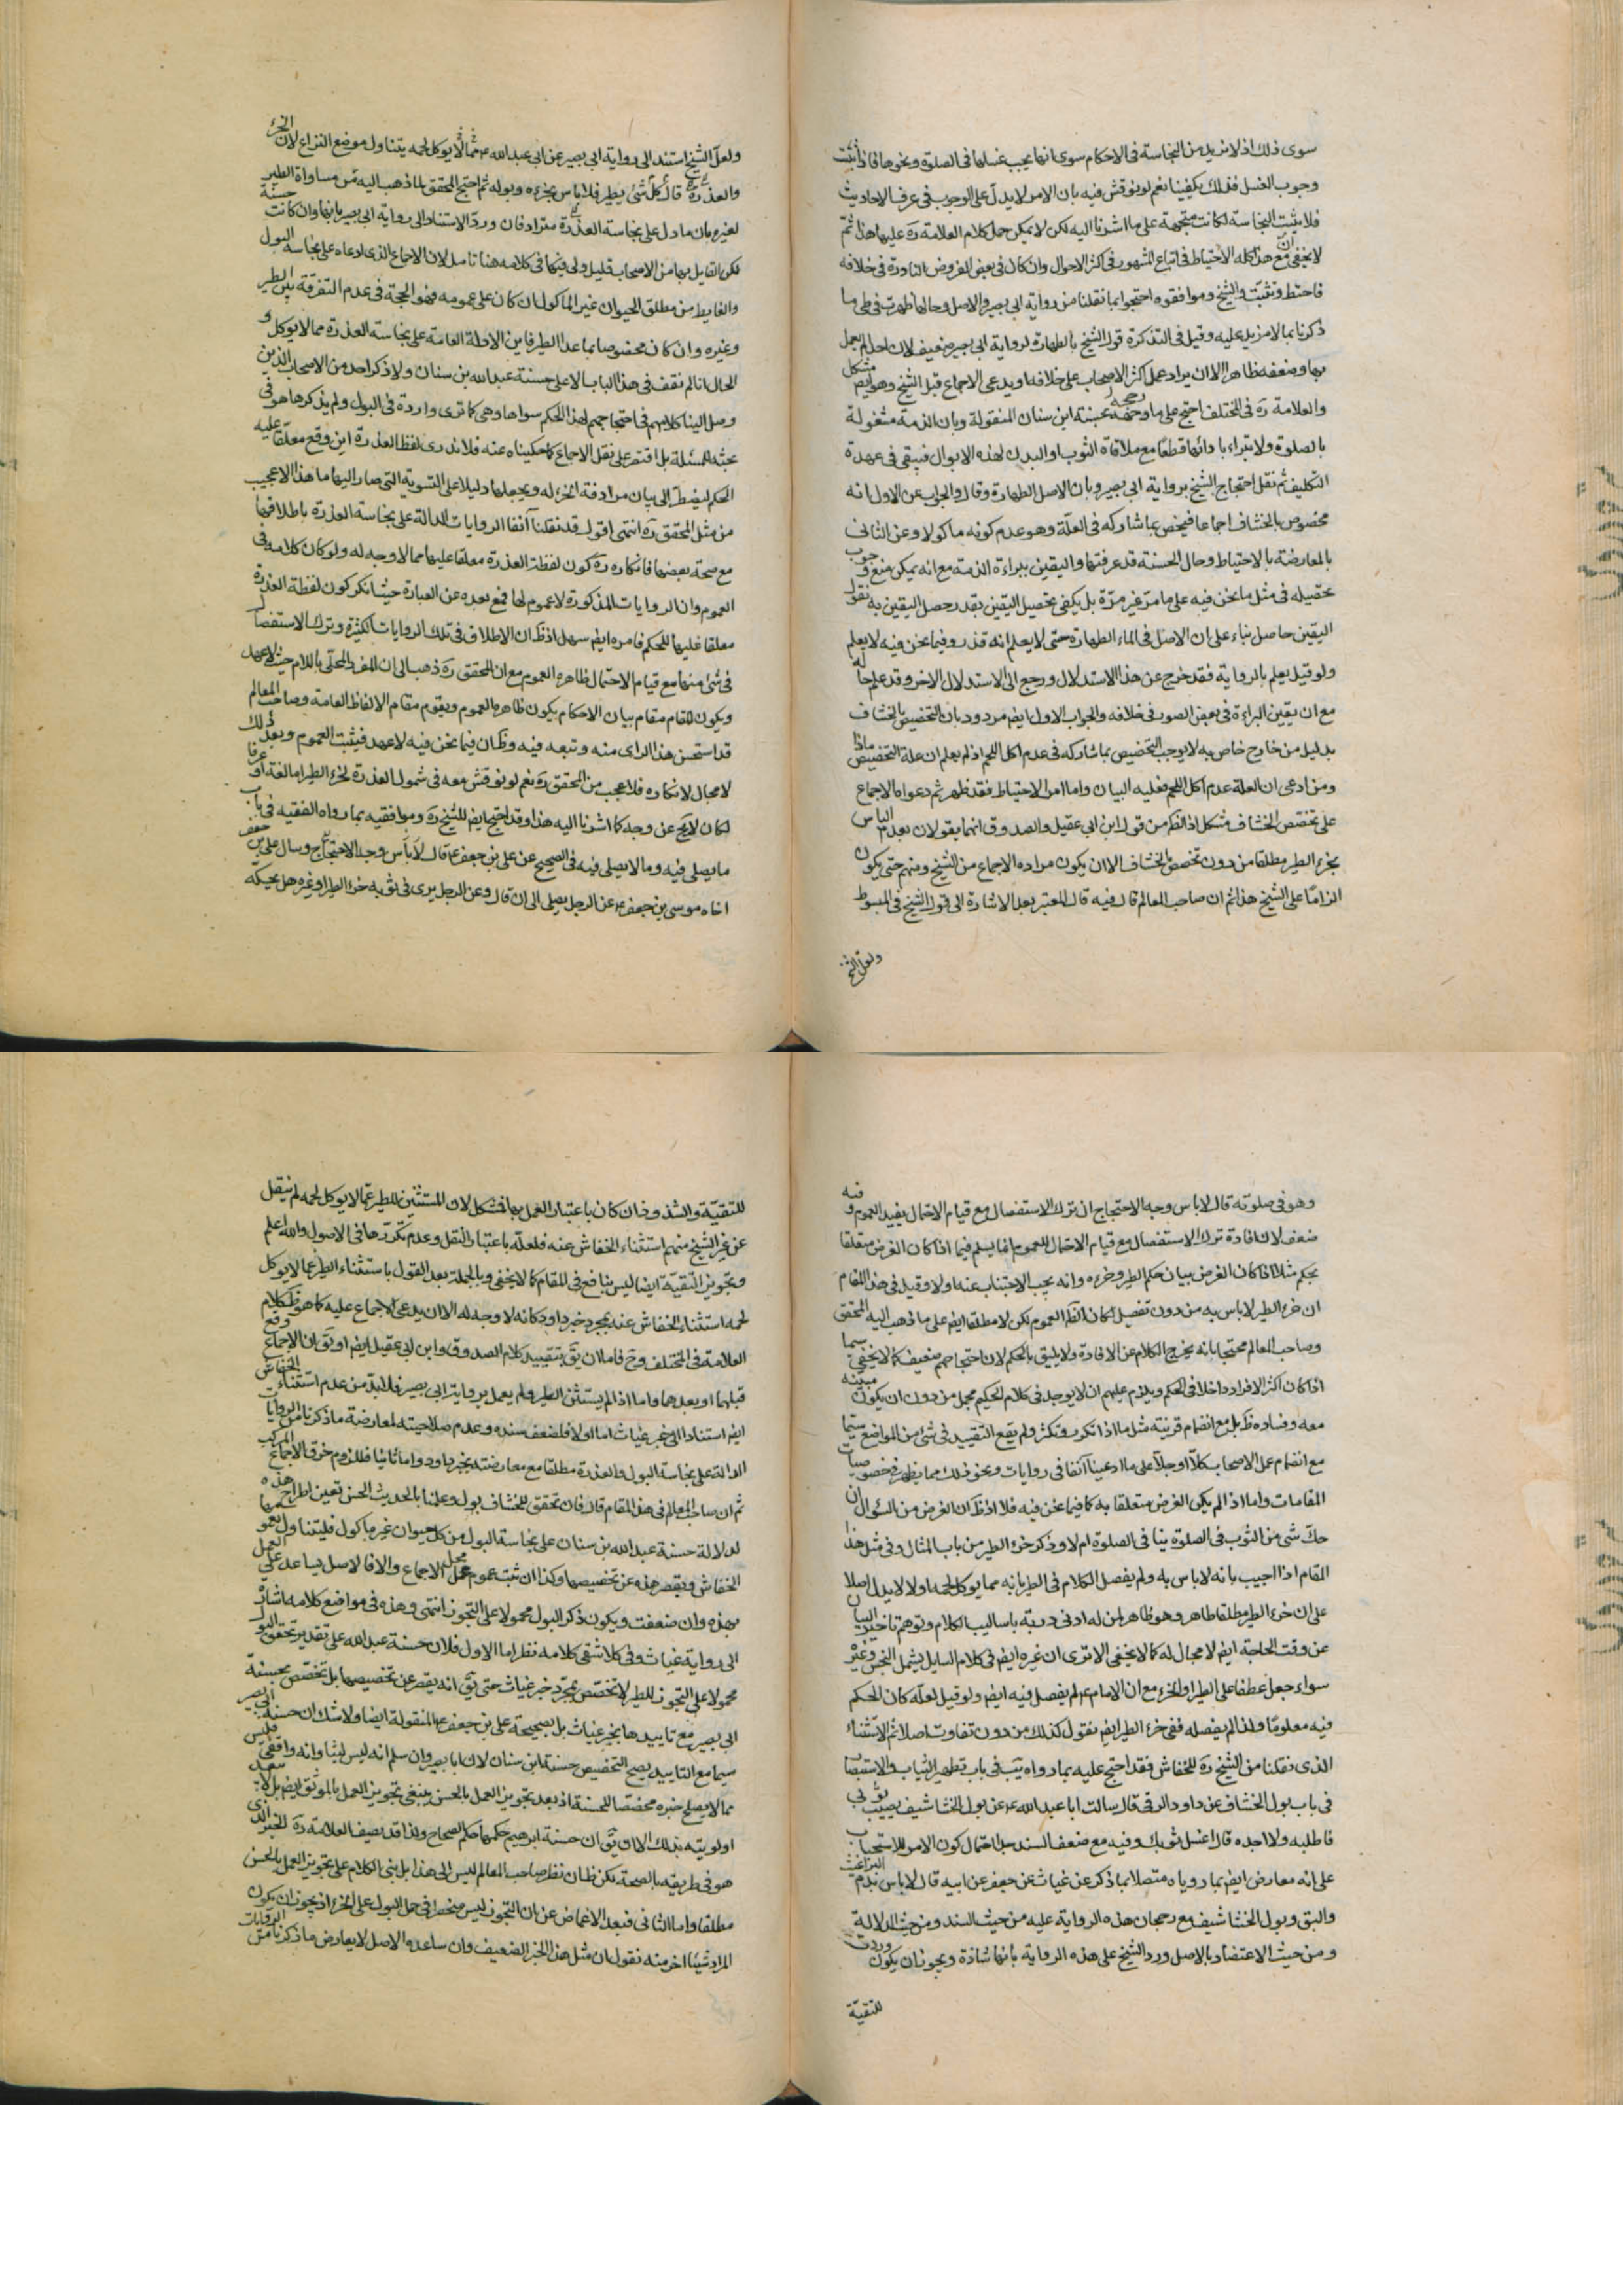 سوى ذلك اذ لا نريد من النجاسة فى الاحكام سوى انها يجب غسلها فى الصلوة ونحوها فاذا ثبت
وجوب الغسل فذلك يكفينا نعم لو نوقش فيه بان الامر لا يدل على الوجوب فى عرف الاحاديث
فلا يثبت النجاسة لكانت متجهة على ما اشرنا اليه لكن لا يمكن حمل كلام العلامة ره عليها هذا ثم
لا يخفى ان مع هذا كله الاحتياط فى اتباع المشهور فى اكثر الاحوال وان كان فى بعض الفروض النادرة فى خلافه
فاحتط وتثبت والشيخ وموافقوه احتجوا بما نقلنا من رواية ابى بصير والاصل وحالها ظهرت فى طى ما
ذكرنا بما لا مزيد عليه وقيل فى التذكرة قول الشيخ بالطهارة لرواية ابى بصير ضعيف لان احدا لم يعمل
بها وضعفه ظاهر الا ان يراد عمل اكثر الاصحاب على خلافه او يدعى الاجماع قبل الشيخ وهو ايضا مشكل
والعلامة ره فى المختلف احتج على ما رجحه بحسنة ابن سنان المنقولة وبان الذمة مشغولة
بالصلوة ولا تبراء بادائها قطعا مع ملاقاة الثوب او البدن لهذه الابوال فيبقى فى عهدة
التكليف ثم نقل احتجاج الشيخ برواية ابى بصير وبان الاصل الطهارة وقال والجواب عن الاول انه
مخصوص بالخشاف اجماعا فيخص بما شاركه فى العلة وهو عدم كونه ماكولا وعن الثانى
بالمعارضة بالاحتياط وحال الحسنة قد عرفتها واليقين ببراءة الذمة مع انه يمكن منع وجوب
تحصيله فى مثل ما نحن فيه على ما مر غير مرة بل يكفى تحصيل اليقين بقدر حصل اليقين به نقول
اليقين حاصل بناء على ان الاصل فى الماء الطهارة حتى لا يعلم انه قذر وفيما نحن فيه لا يعلم
ولو قيل يعلم بالرواية فقد خرج عن هذا الاستدلال ورجع الى الاستدلال الاخر وقد علم حاله
مع ان يقين البراءة فى بعض الصور فى خلافه والجواب الاول ايضا مردود بان التخصيص بالخشاف
بدليل من خارج خاص به لا يوجب التخصيص بما شاركه فى عدم اكل اللحم اذ لم يعلم ان علة التخصيص ماذا
ومن ادعى ان العلة عدم اكل اللحم فعليه البيان واما امر الاحتياط فقد ظهر ثم دعواه الاجماع
على تخصص الخشاف مشكل اذ الظ من قول ابن ابى عقيل والصدوق انهما يقولان بعدم الباس
بخرء الطير مطلقا من دون تخصص بالخشاف الا ان يكون مراده الاجماع من الشيخ ومنهم حتى يكون
الزاما على الشيخ هذا ثم ان صاحب المعالم قال فيه قال المعتبر بعد الاشارة الى قول الشيخ فى المبسوط
ولعل الشيخ
ولعل الشيخ استند الى رواية ابى بصير عن ابى عبد الله ع فما لا يوكل لحمه يتناول موضع النزاع لان الخرء
والعذرة قال كل شئ يطير فلا باس بخرءه وبوله ثم احتج المحقق لما ذهب اليه من مساواة الطير
لغيره بان ما دل على نجاسة العذرة مترادفان ورد الاستناد الى رواية ابى بصير بانها وان كانت حسنة
لكن القايل بها من الاصحاب قليل ولى فيها فى كلامه هنا تامل لان الاجماع الذى ادعاه على نجاسة البول
والغايط من مطلق الحيوان غير الماكول ان كان على عمومه فهو الحجة فى عدم التفرقة بين الطير
وغيره وان كان مخصوصا بما عدا الطير فاين الادلة العامة على نجاسة العذرة مما لا يوكل و
الحال انا لم نقف فى هذا الباب الا على حسنة عبد الله بن سنان ولا ذكر احد من الاصحاب الذين
وصل الينا كلامهم فى احتجاجهم لهذا الحكم سواها وهى كما ترى واردة فى البول ولم يذكرها هو فى
بحثه للمسئلة بل اقتصر على نقل الاجماع كما حكيناه عنه فلا ندرى لفظ العذرة اين وقع معلقا عليه
الحكم ليضطر الى بيان مرادفة الخرء له ويجعلها دليلا على التسوية التى صار اليها ما هذا الا عجيب
من مثل المحقق ره انتهى اقول قد نقلنا آنفا الروايات الدالة على نجاسة العذرة باطلاقها
مع صحة بعضها فانكاره ره كون لفظة العذرة معلقا عليها مما لا وجه له ولو كان كلامه فى
العموم وان الروايات المذكورة لا عموم لها فمع بعده عن العبارة حيث انكر كون لفظة العذرة
معلقا عليها للحكم فامره ايضا سهل اذ ظ ان الاطلاق فى تلك الروايات الكثيرة وترك الاستفصال
فى شئ منها مع قيام الاحتمال ظاهره العموم مع ان المحقق ره ذهب الى ان المفرد المحلى باللام حيث لا عهد
ويكون المقام مقام بيان الاحكام يكون ظاهره العموم ويقوم مقام الالفاظ العامة وصاحب المعالم
قد استحسن هذا الراى منه وتبعه فيه وظ ان فيما نحن فيه لا عهد فيثبت العموم وبعد ذلك
لا مجال لانكاره فلا عجب من المحقق ره نعم لو نوقش معه فى شمول العذرة لخرء الطير اما لغة او عرفا
لكان لا يخ عن وجه كما اشرنا اليه هذا وقد احتج ايضا للشيخ ره وموافقيه بما رواه الفقيه فى باب
ما يصلى فيه وما لا يصلى فيه فى الصحيح عن على بن جعفر ع قال لا باس وجه الاحتجاج وسال على بن جعفر
اخاه موسى بن جعفر ع عن الرجل يصلى الى ان قال وعن الرجل يرى فى ثوبه خرء الطير او غيره هل يحكه
وهو فى صلوته قال لا باس وجه الاحتجاج ان ترك الاستفصال مع قيام الاحتمال يفيد العموم وفيه
ضعف لان افادة ترك الاستفصال مع قيام الاحتمال للعموم انما يسلم فيما اذا كان الغرض متعلقا
بحكم مثلا اذا كان الغرض بيان حكم الطير وخرءه وانه يجب الاجتناب عنه او لا وقيل فى هذا المقام
ان خرء الطير لا باس به من دون تفصيل لكان الظ العموم لكن لا مطلقا ايضا على ما ذهب اليه المحقق
وصاحب المعالم محتجا بانه يخرج الكلام عن الافادة ولا يليق بالحكم لان احتجاجهم ضعيف كما لا يخفى سيما
اذا كان اكثر الافراد داخلا فى الحكم ويلزم عليهم ان لا يوجد فى كلام الحكيم مجمل من دون ان يكون مبينه
معه وفساده ظ بل مع انضمام قرينة مثل ما اذا تكرر وتكثر ولم يقع التقييد فى شئ من المواضع سيما
مع انضمام عمل الاصحاب كلا او جلا على ما ادعينا آنفا فى روايات ونحو ذلك مما يظهر فى خصوصيات
المقامات واما اذا لم يكن الغرض متعلقا به كما فيما نحن فيه فلا اذ ظ ان الغرض من السؤال ان
حك شئ من الثوب فى الصلوة ينافى الصلوة ام لا وذكر خرء الطير من باب المثال وفى مثل هذا
المقام اذا اجيب بانه لا باس به ولم يفصل الكلام فى الطير بانه مما يوكل لحمه او لا لا يدل اصلا
على ان خرء الطير مطلقا طاهر وهو ظاهر لمن له ادنى دربة باساليب الكلام وتوهم تاخير البيان
عن وقت الحاجة ايضا لا مجال له كما لا يخفى الا ترى ان غيره ايضا فى كلام السايل يشمل النجس وغيره
سواء جعل عطفا على الطير او الخرء مع ان الامام ع لم يفصل فيه ايضا ولو قيل لعله كان الحكم
فيه معلوما ولذا لم يفصله ففى خرء الطير ايضا نقول كذلك من دون تفاوت اصلا ثم الاستثناء
الذى نقلنا من الشيخ ره للخفاش فقد احتج عليه بما رواه يب فى باب تطهير الثياب والاستبصار
فى باب بول الخشاف عن داود الرقى قال سالت ابا عبد الله ع عن بول الخشاشيف يصيب ثوبى
فاطلبه ولا اجده قال اغسل ثوبك وفيه مع ضعف السند سيما احتمال كون الامر للاستحباب
على انه معارض ايضا بما روياه متصلا بما ذكر عن غياث عن جعفر عن ابيه قال لا باس بدم البراغيث
والبق وبول الخشاشيف مع رجحان هذه الرواية عليه من حيث السند ومن حيث الدلالة
ومن حيث الاعتضاد بالاصل ورد الشيخ على هذه الرواية بانها شاذة ويجوز ان يكون وردت
للتقية
للتقية والشذوذ ان كان باعتبار العمل بها فمشكل لان المستثنين للطير عما لا يوكل لحمه لم ينقل
عن غير الشيخ منهم استثناء الخفاش عنه فلعله باعتبار النقل وعدم تكررها فى الاصول والله اعلم
وتجويز التقية ايضا ليس بنافع فى المقام كما لا يخفى وبالجملة بعد القول باستثناء الطير عما لا يوكل
لحمه استثناء الخفاش عنه بمجرد خبر داود كانه لا وجه له الا ان يدعى الاجماع عليه كما هو ظ كلام
العلامة فى المختلف وح فاما ان يق بتقييد كلام الصدوق وابن ابى عقيل ايضا او يق ان الاجماع وقع
قبلهما او بعدهما واما اذا لم يستثن الطير ولم يعمل برواية ابى بصير فلا بد من عدم استثناء الخفاش
ايضا استنادا الى خبر غياث اما اولا فلضعف سنده وعدم صلاحيته لمعارضة ما ذكرنا من الروايات
الدالة على نجاسة البول والعذرة مطلقا مع معارضته بخبر داود واما ثانيا فللزوم خرق الاجماع المركب
ثم ان صاحب المعالم فى هذا المقام قال فان تحقق للخشاف بول وعملنا بالحديث الحسن تعين اطراح هذه
لدلالة حسنة عبد الله بن سنان على نجاسة البول من كل حيوان غير ماكول فليتناول بعمومها
الخفاش ويقصر هذه عن تخصيصها وكذا ان ثبت عموم محل الاجماع والا فالاصل يساعد على العمل
بهذه وان ضعفت ويكون ذكر البول محمولا على التجوز انتهى وهذه فى مواضع كلامه اشارة
الى رواية غياث وفى كلا شقى كلامه نظر اما الاول فلان حسنة عبد الله على تقدير تحقق البول
محمولا على التجوز للطير لا تخصص بمجرد خبر غياث حتى يق انه يقصر عن تخصيصها بل تخصص بحسنة
ابى بصير مع تاييدها بخبر غياث بل بصحيحة على بن جعفر ع المنقولة ايضا ولا شك ان حسنة ابى بصير
سيما مع التاييد يصح التخصيص حسنة ابن سنان لان ابا بصير وان سلم انه ليس ليثا وانه واقفى فليس
مما لا يصلح خبره مخصصا للحسنة اذ بعد تجويز العمل بالحسن ينبغى تجويز العمل بالموثق ايضا بل لا يبعد
اولويته بذلك الا ان يق ان حسنة ابراهيم حكمها حكم الصحاح ولذا قد يصف العلامة ره الخبر الذى
هو فى طريقه بالصحة لكن ظ ان نظر صاحب المعالم ليس الى هذا بل بنى الكلام على تجويز العمل بالحسن
مطلقا واما الثانى فبعد الاغماض عن ان التجوز ليس منحصرا فى حمل البول على الخرء اذ يجوز ان يكون
المراد شيئا اخر منه نقول ان مثل هذا الخبر الضعيف وان ساعده الاصل لا يعارض ما ذكرنا من الروايات